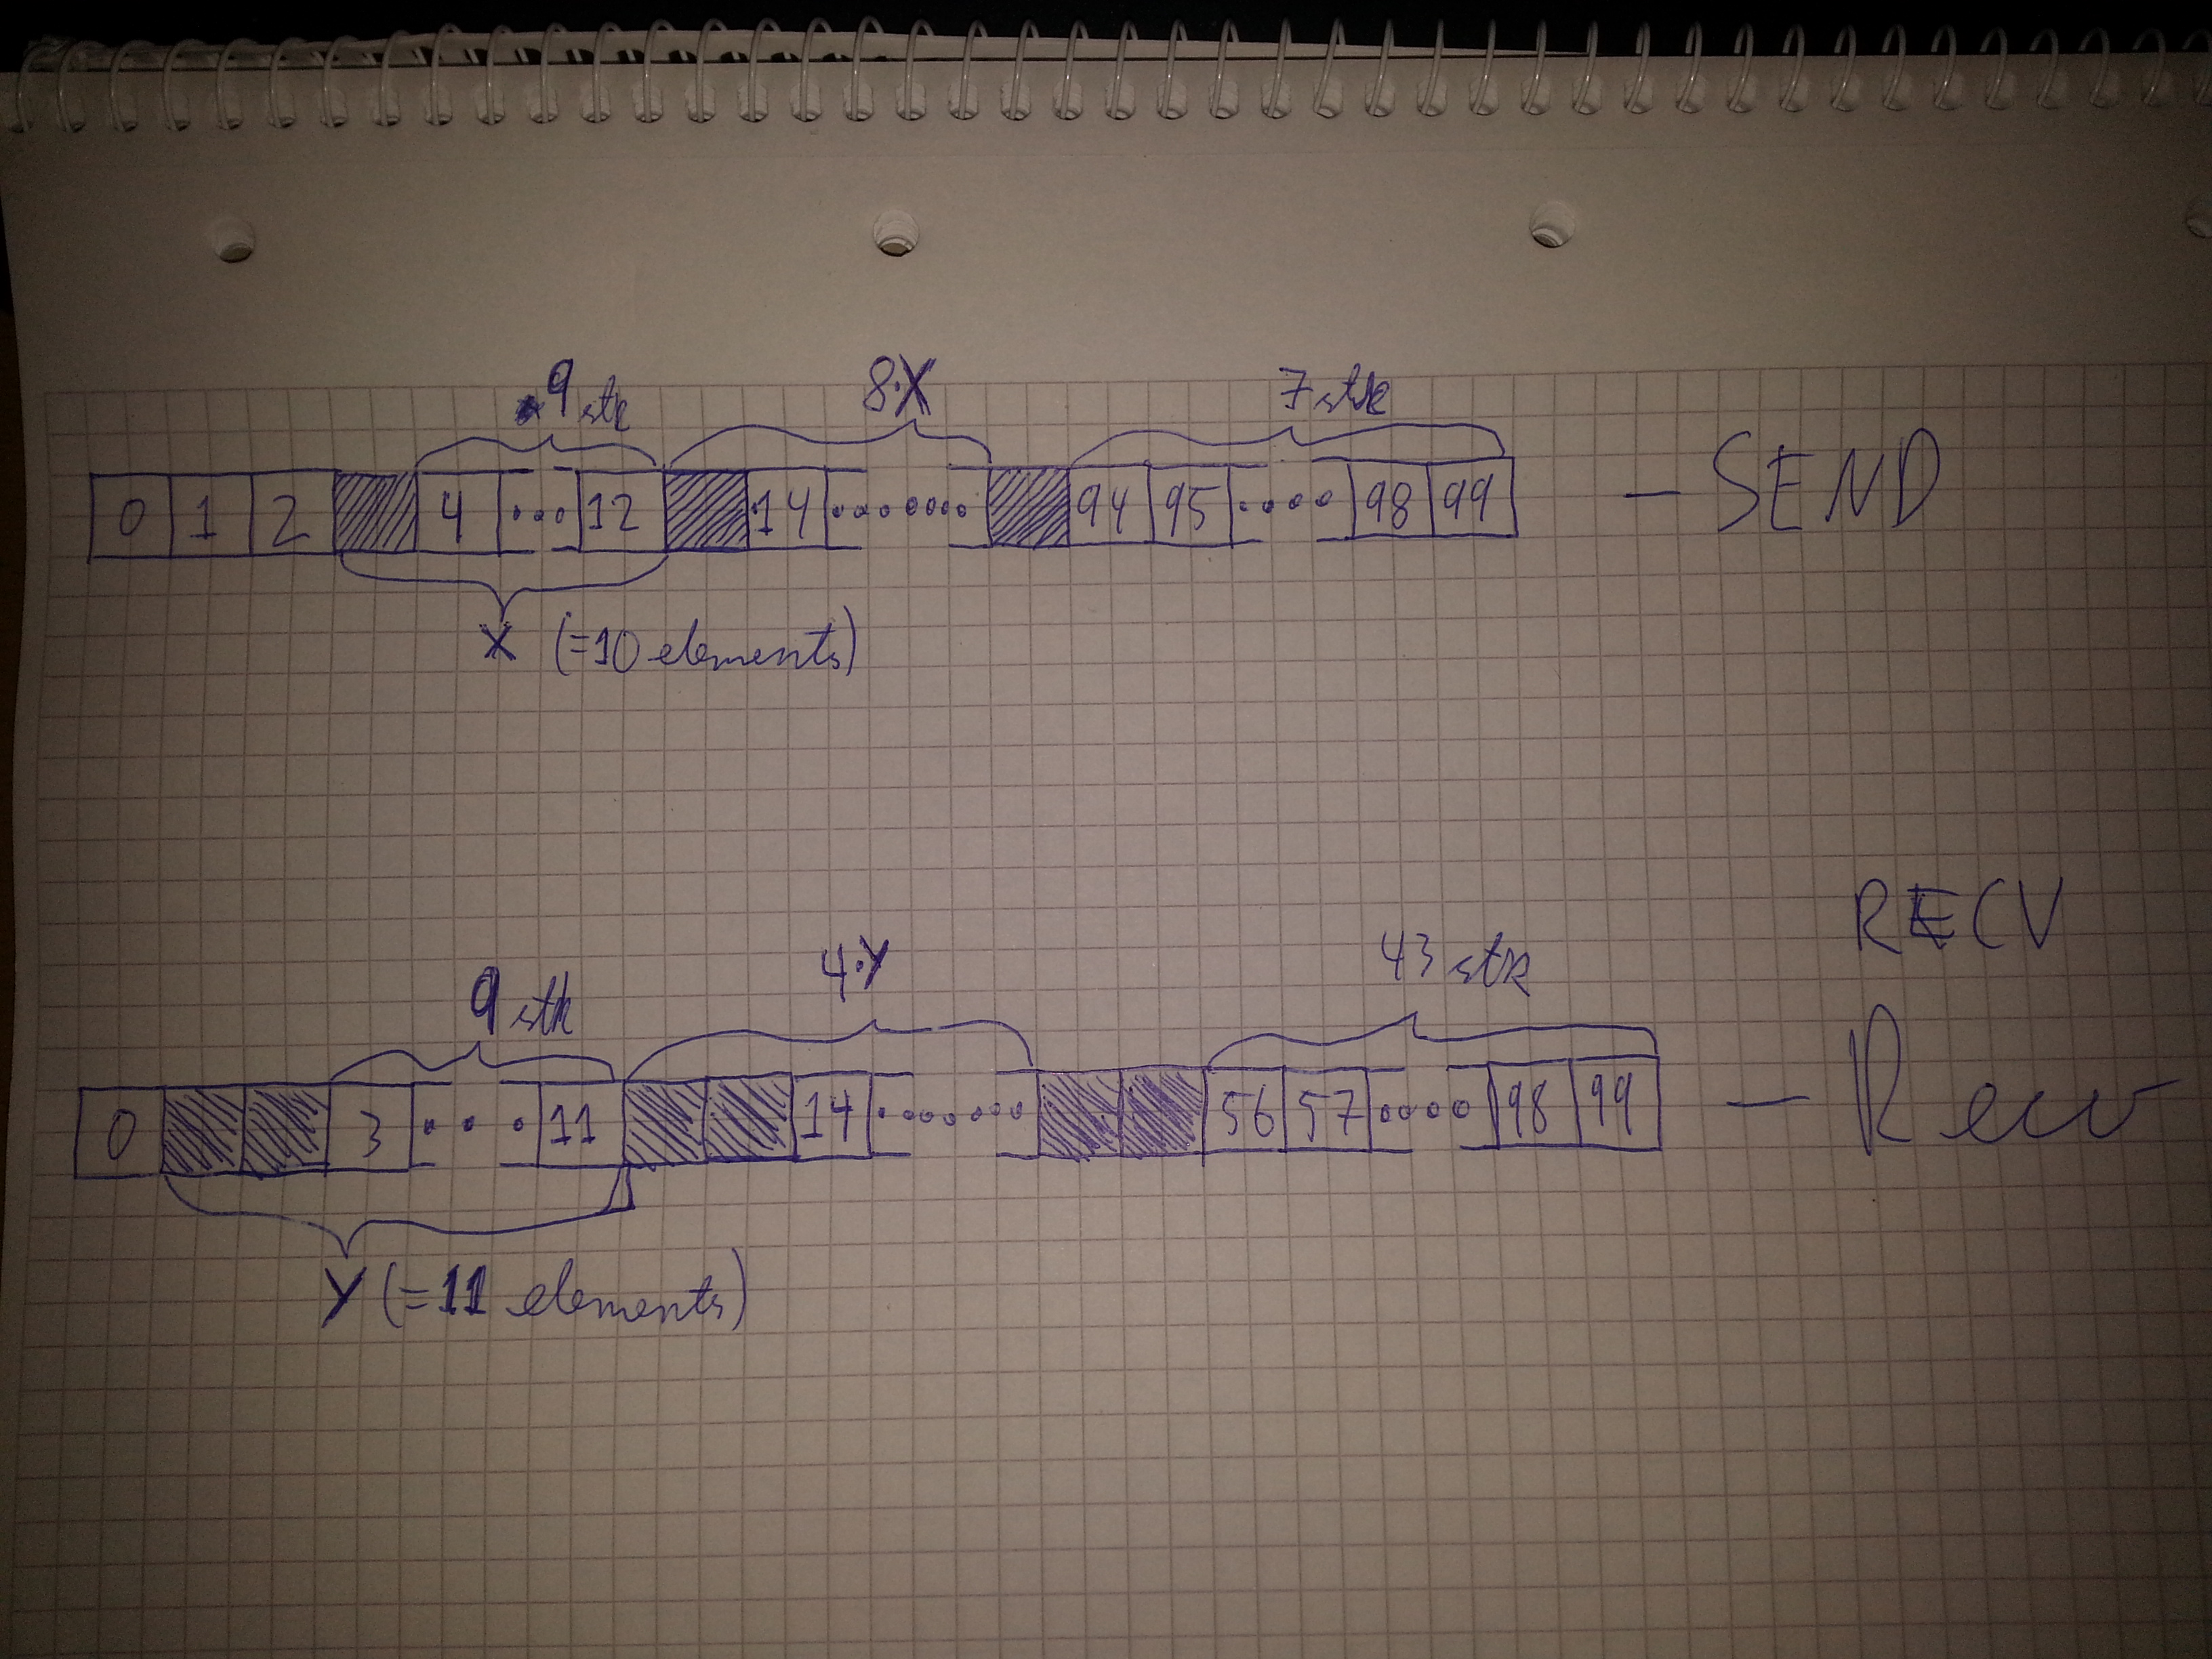 9 stk 8·X 7 stk
0 1 2 4 ... 12 14 ........ 94 95 .... 98 99 — SEND
X (=10 elements)
RECV
9 stk 4·Y 43 stk
0 3 ... 11 14 ....... 56 57 .... 98 99 — Recv
Y (=11 elements)